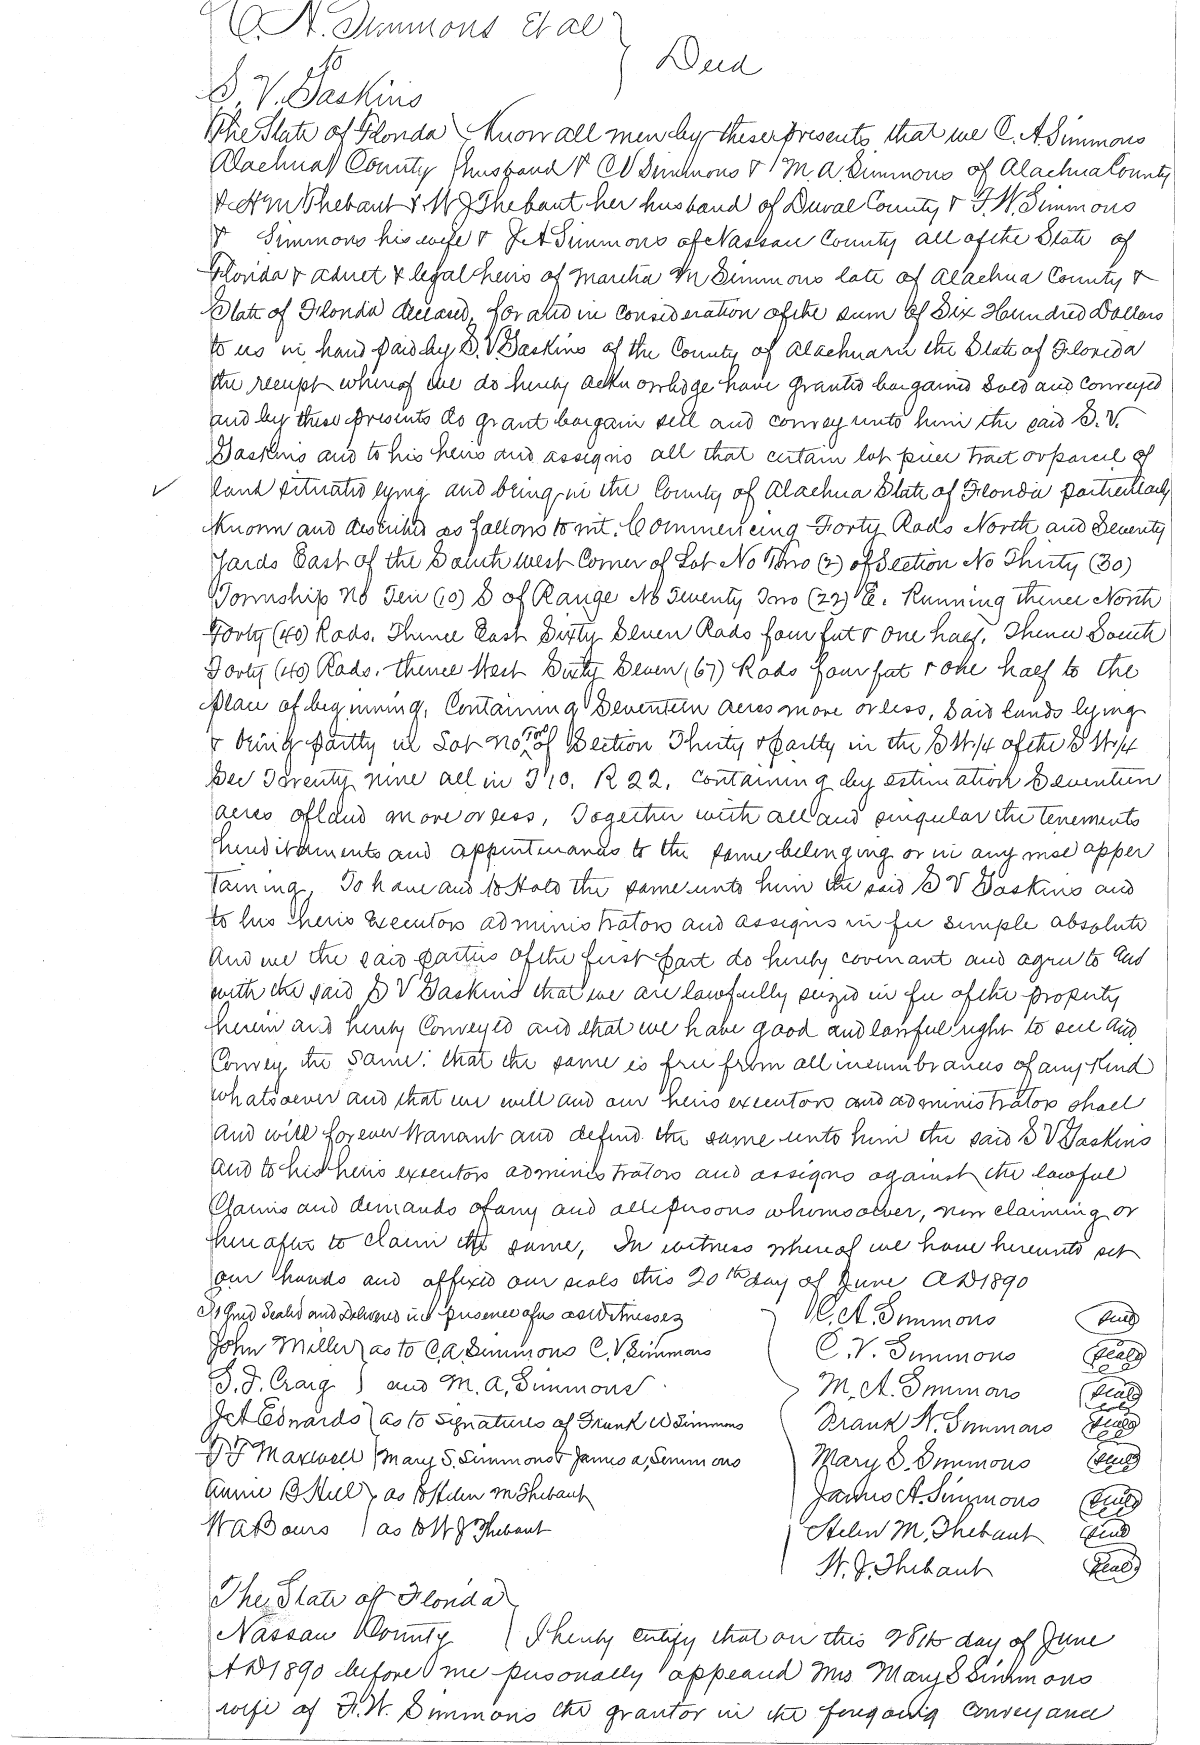 C. A. Simmons Et al
to } Deed
S. V. Gaskins
The State of Florida } Know all men by these presents that we C. A Simmons
Alachua County } husband & C V Simmons & M. A. Simmons of Alachua County
& H M Thebaut & W J Thebaut her husband of Duval County & F. W. Simmons
& Simmons his wife & J A Simmons of Nassau County all of the State of
Florida & & legal heirs of Martha M Simmons late of Alachua County &
State of Florida deceased, for and in consideration of the sum of Six Hundred Dollars
to us in hand paid by S. V Gaskins of the County of Alachua in the State of Florida
the receipt whereof we do hereby acknowledge have granted bargained Sold and conveyed
and by these presents do grant bargain sell and convey unto him the said S. V.
Gaskins and to his heirs and assigns all that certain lot piece tract or parcel of
land situated lying and being in the County of Alachua State of Florida particularly
Known and described as follows to wit. Commencing Forty Rods North and Seventy
Yards East of the South west Corner of Lot No Two (2) of Section No Thirty (30)
Township No Ten (10) S of Range No Twenty Two (22) E. Running thence North
Forty (40) Rods. Thence East Sixty Seven Rods four feet & one half. Thence South
Forty (40) Rods. thence West Sixty Seven (67) Rods four feet & one half to the
place of beginning, Containing Seventeen acres more or less, Said lands lying
& being partly in Lot No Two of Section Thirty & partly in the S W 1/4 of the S W 1/4
Sec Twenty nine all in T 10. R 22. containing by estimation Seventeen
acres of land more or less, Together with all and singular the tenements
hereditaments and appurtenances to the same belonging or in any wise apper
taining, To have and to Hold the same unto him the said S V Gaskins and
to his heirs Executors administrators and assigns in fee simple absolute
And we the said parties of the first part do hereby covenant and agree to and
with the said S V Gaskins that we are lawfully seized in fee of the property
herein and hereby Conveyed and that we have good and lawful right to sell and
Convey the same: that the same is free from all incumbrances of any Kind
whatsoever and that we will and our heirs executors and administrators shall
and will forever Warrant and defend the same unto him the said S V Gaskins
and to his heirs executors administrators and assigns against the lawful
Claims and demands of any and all persons whomsoever, now claiming or
hereafter to claim the same, In witness whereof we have hereunto set
our hands and affixed our seals this 20th day of June AD 1890
Signed Sealed and Delivered in presence of us as Witnesses } C. A. Simmons Seal
John Miller } as to C. A. Simmons C. V. Simmons C. V. Simmons Seal
S. J. Craig } and M. A. Simmons M. A. Simmons Seal
J A Edwards } as to signatures of Frank W Simmons Frank W. Simmons Seal
T F Maxwell } Mary S. Simmons & James A, Simmons Mary S. Simmons Seal
Annie B Hill } as to Helen M Thebaut James A. Simmons Seal
W A Bours } as to W J Thebaut Helen M. Thebaut Seal
W. J. Thebaut Seal
The State of Florida }
Nassau County } I hereby certify that on this 28th day of June
AD 1890 before me personally appeared Mrs Mary S Simmons
wife of F. W. Simmons the grantor in the foregoing conveyance